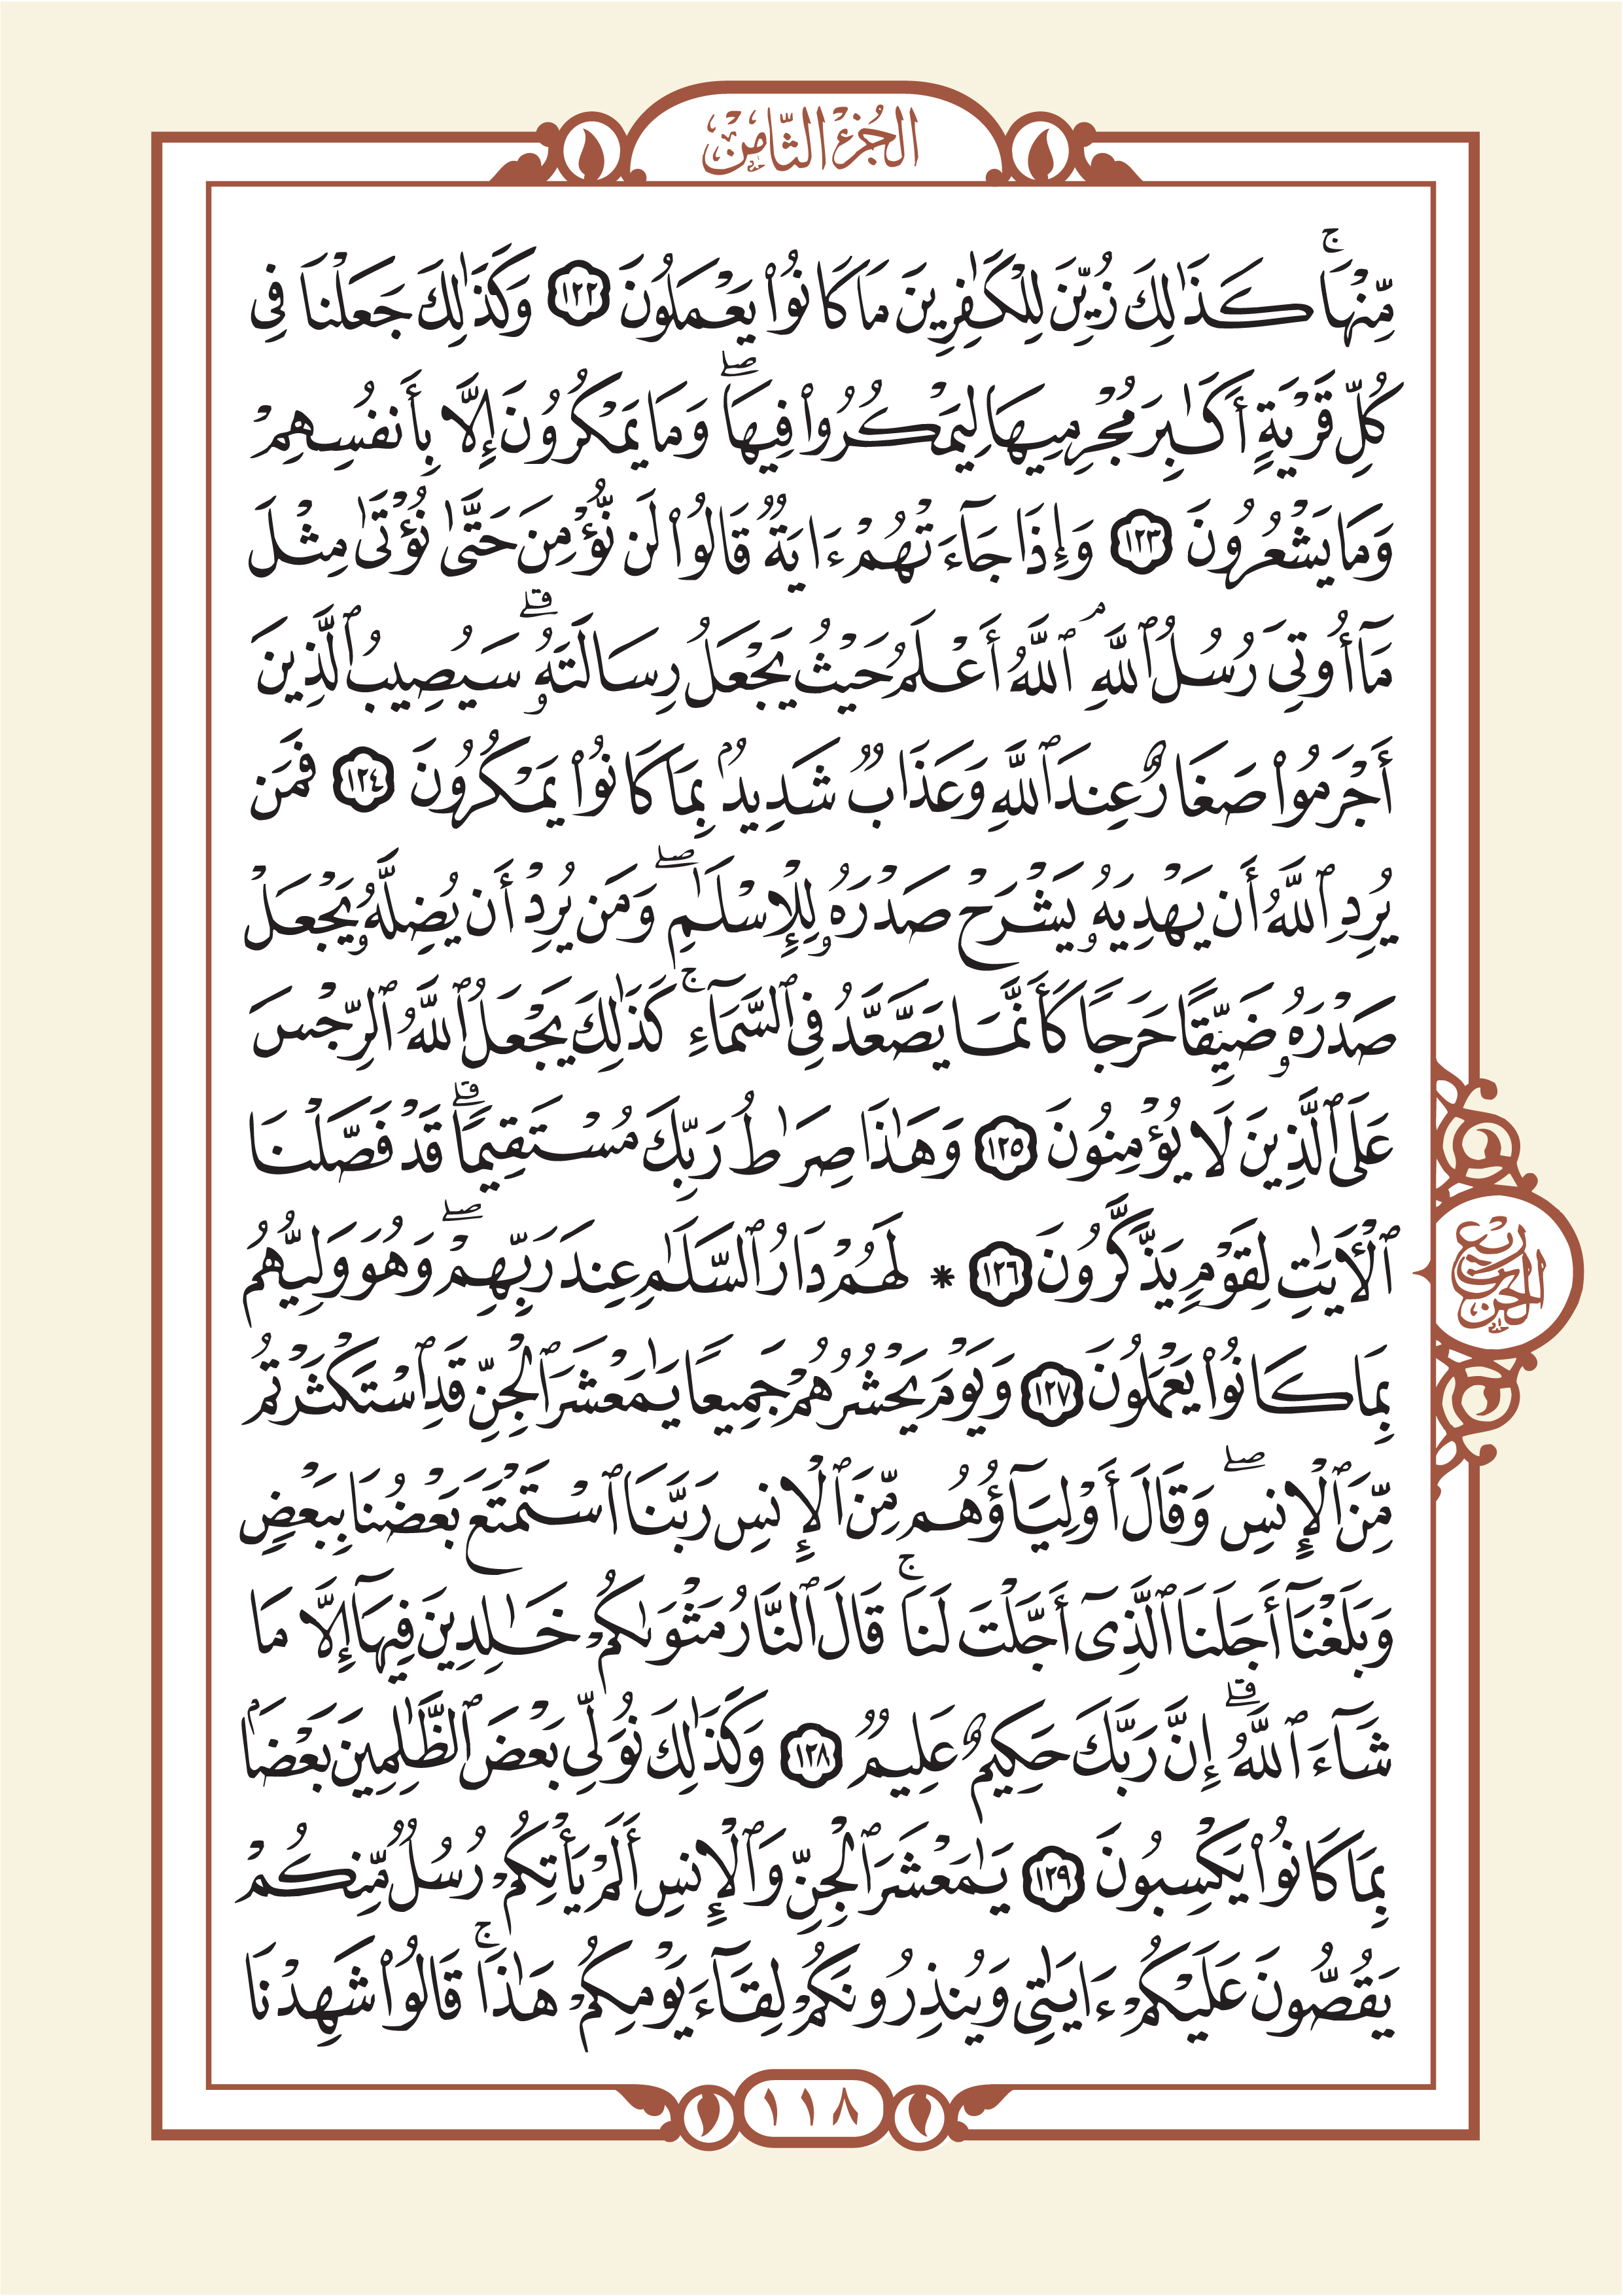 الجُزْءُ الثَّامِنُ
مِّنْهَاۚ كَذَٰلِكَ زُيِّنَ لِلْكَٰفِرِينَ مَا كَانُوا۟ يَعْمَلُونَ ١٢٢ وَكَذَٰلِكَ جَعَلْنَا فِى
كُلِّ قَرْيَةٍ أَكَٰبِرَ مُجْرِمِيهَا لِيَمْكُرُوا۟ فِيهَاۖ وَمَا يَمْكُرُونَ إِلَّا بِأَنفُسِهِمْ
وَمَا يَشْعُرُونَ ١٢٣ وَإِذَا جَآءَتْهُمْ ءَايَةٌ قَالُوا۟ لَن نُّؤْمِنَ حَتَّىٰ نُؤْتَىٰ مِثْلَ
مَآ أُوتِىَ رُسُلُ ٱللَّهِۘ ٱللَّهُ أَعْلَمُ حَيْثُ يَجْعَلُ رِسَالَتَهُۥۗ سَيُصِيبُ ٱلَّذِينَ
أَجْرَمُوا۟ صَغَارٌ عِندَ ٱللَّهِ وَعَذَابٌ شَدِيدٌۢ بِمَا كَانُوا۟ يَمْكُرُونَ ١٢٤ فَمَن
يُرِدِ ٱللَّهُ أَن يَهْدِيَهُۥ يَشْرَحْ صَدْرَهُۥ لِلْإِسْلَٰمِۖ وَمَن يُرِدْ أَن يُضِلَّهُۥ يَجْعَلْ
صَدْرَهُۥ ضَيِّقًا حَرَجًا كَأَنَّمَا يَصَّعَّدُ فِى ٱلسَّمَآءِۚ كَذَٰلِكَ يَجْعَلُ ٱللَّهُ ٱلرِّجْسَ
عَلَى ٱلَّذِينَ لَا يُؤْمِنُونَ ١٢٥ وَهَٰذَا صِرَٰطُ رَبِّكَ مُسْتَقِيمًاۗ قَدْ فَصَّلْنَا
ٱلْأٓيَٰتِ لِقَوْمٍ يَذَّكَّرُونَ ١٢٦ * لَهُمْ دَارُ ٱلسَّلَٰمِ عِندَ رَبِّهِمْۖ وَهُوَ وَلِيُّهُم
رُبْعُ الحِزْبِ
بِمَا كَانُوا۟ يَعْمَلُونَ ١٢٧ وَيَوْمَ يَحْشُرُهُمْ جَمِيعًا يَٰمَعْشَرَ ٱلْجِنِّ قَدِ ٱسْتَكْثَرْتُم
مِّنَ ٱلْإِنسِۖ وَقَالَ أَوْلِيَآؤُهُم مِّنَ ٱلْإِنسِ رَبَّنَا ٱسْتَمْتَعَ بَعْضُنَا بِبَعْضٍ
وَبَلَغْنَآ أَجَلَنَا ٱلَّذِىٓ أَجَّلْتَ لَنَاۚ قَالَ ٱلنَّارُ مَثْوَىٰكُمْ خَٰلِدِينَ فِيهَآ إِلَّا مَا
شَآءَ ٱللَّهُۗ إِنَّ رَبَّكَ حَكِيمٌ عَلِيمٌ ١٢٨ وَكَذَٰلِكَ نُوَلِّى بَعْضَ ٱلظَّٰلِمِينَ بَعْضًۢا
بِمَا كَانُوا۟ يَكْسِبُونَ ١٢٩ يَٰمَعْشَرَ ٱلْجِنِّ وَٱلْإِنسِ أَلَمْ يَأْتِكُمْ رُسُلٌ مِّنكُمْ
يَقُصُّونَ عَلَيْكُمْ ءَايَٰتِى وَيُنذِرُونَكُمْ لِقَآءَ يَوْمِكُمْ هَٰذَاۚ قَالُوا۟ شَهِدْنَا
١١٨